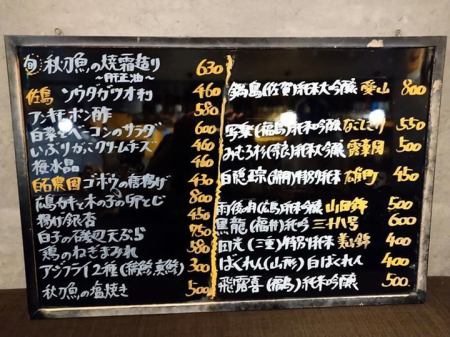 旬 秋刀魚の焼霜造り 630
～肝正油～
佐島 ソウダガツオ刺 460
アンキモポン酢 580
白菜とベーコンのサラダ 600
いぶりがこクリームチーズ 460
梅水晶 460
白石農園 ゴボウの唐揚げ 430
鶏ガキ木の子の卵とじ 800
揚げ銀杏 450
白子の磯辺天ぷら 750
鶏のねぎまみれ 580
アジフライ2種 300
秋刀魚の塩焼き 500
鍋島(佐賀)純米大吟醸 愛山 800
写楽(福島)純米吟醸 なごしざけ 550
みむろ杉(奈良)純米大吟醸 露葉風 500
白隠正宗(静岡)特別純米 雄町 450
雨後の月(広島)純米吟醸 山田錦 500
黒龍(福井)吟醸 三十八号 600
田光(三重)特別純米 美山錦 400
ばくれん(山形)白ばくれん 400
飛露喜(福島)純米吟醸 500